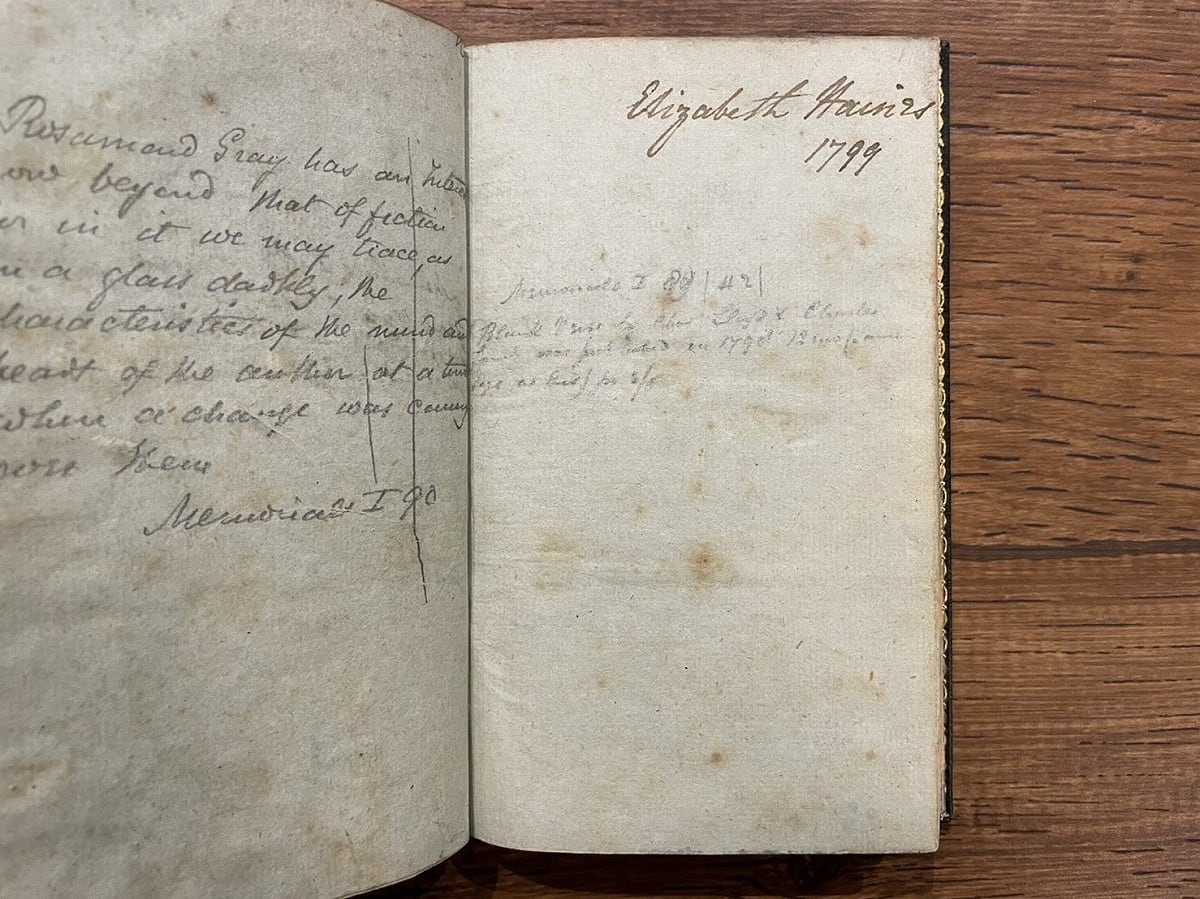 Rosamond Gray has an Inter
now beyond that of fiction
for in it we may trace, as
in a glass darkly, the
characteristics of the mind and
heart of the author at a time
when a change was coming
over them
Memorials I 90
Elizabeth Haines
1799
Memorials I 88 | 42 |
Blank Verse by Chas Lloyd & Charles
Lamb was published in 1798 12mo